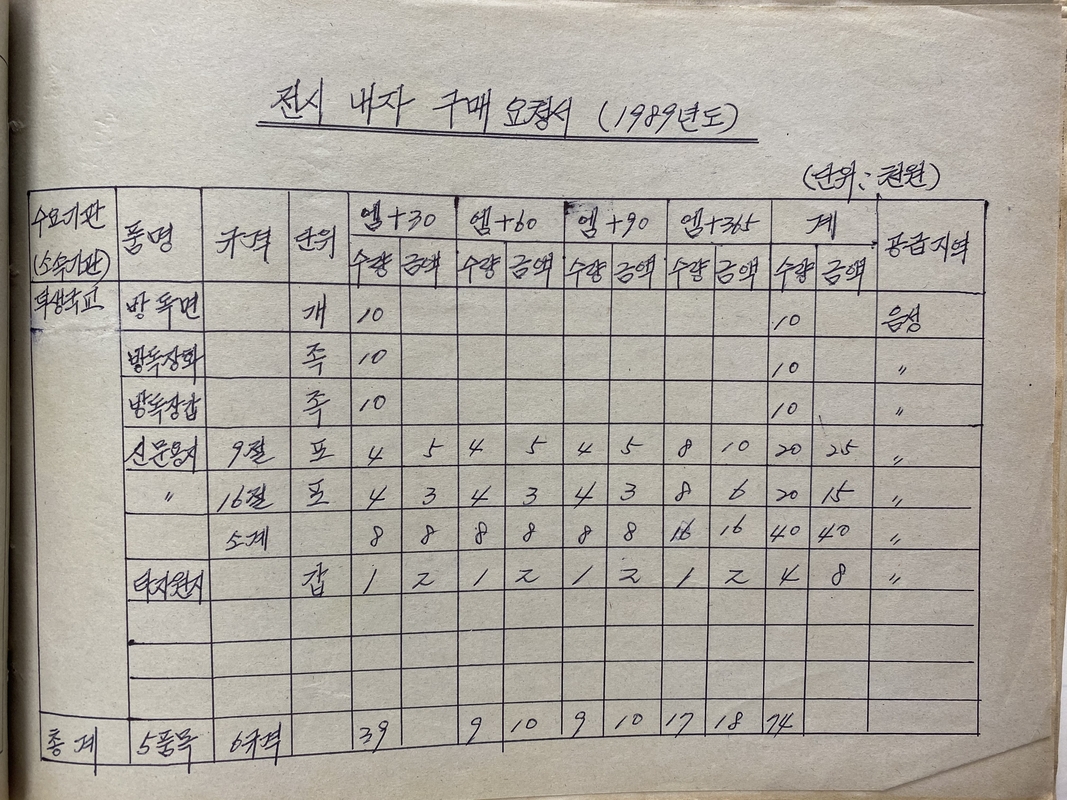 전시 내자 구매 요청서 (1989년도)
(단위: 천원)
수요기관 (소속기관) 품명 규격 단위 엠+30 엠+60 엠+90 엠+365 계 공급지역
수량 금액 수량 금액 수량 금액 수량 금액 수량 금액
방독면 개 10 10 음성
방독장화 족 10 10 〃
방독장갑 족 10 10 〃
신문용지 9절 포 4 5 4 5 4 5 8 10 20 25 〃
〃 16절 포 4 3 4 3 4 3 8 6 20 15 〃
소계 8 8 8 8 8 8 16 16 40 40 〃
타자원지 갑 1 2 1 2 1 2 1 2 4 8 〃
총계 5품목 6규격 39 9 10 9 10 17 18 74